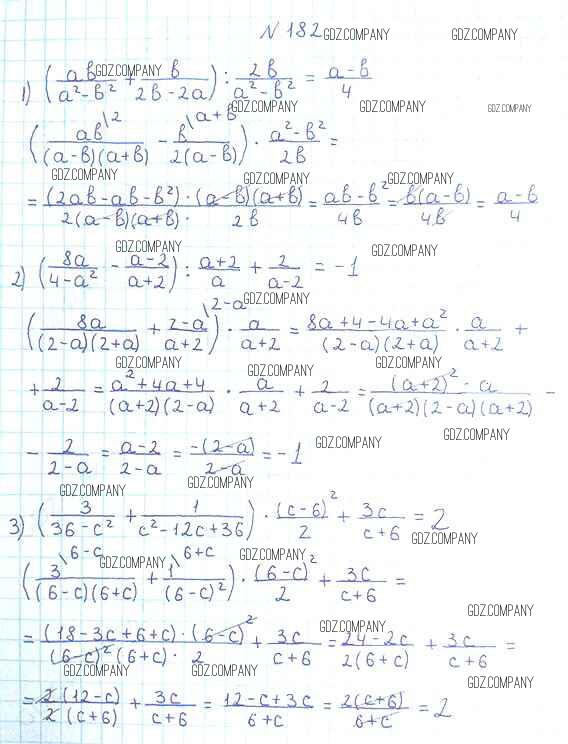 N 182 GDZ.COMPANY GDZ.COMPANY
GDZ.COMPANY
1) (ab/(a²-b²) + b/(2b-2a)) : 2b/(a²-b²) = (a-b)/4
GDZ.COMPANY GDZ.COMPANY GDZ.COMPANY
(ab\2/((a-b)(a+b)) - b\a+b/(2(a-b))) · (a²-b²)/2b =
GDZ.COMPANY GDZ.COMPANY GDZ.COMPANY
= ((2ab-ab-b²)·(a-b)(a+b))/(2(a-b)(a+b)·2b) = (ab-b²)/4b = b(a-b)/4b = (a-b)/4
GDZ.COMPANY GDZ.COMPANY
2) (8a/(4-a²) - (a-2)/(a+2)) : (a+2)/a + 2/(a-2) = -1
GDZ.COMPANY
(8a/((2-a)(2+a)) + (2-a)\2-a/(a+2)) · a/(a+2) = (8a+4-4a+a²)/((2-a)(2+a)) · a/(a+2) +
GDZ.COMPANY GDZ.COMPANY GDZ.COMPANY
+ 2/(a-2) = (a²+4a+4)/((a+2)(2-a)) · a/(a+2) + 2/(a-2) = ((a+2)²·a)/((a+2)(2-a)(a+2)) -
GDZ.COMPANY GDZ.COMPANY
- 2/(2-a) = (a-2)/(2-a) = -(2-a)/(2-a) = -1
GDZ.COMPANY GDZ.COMPANY
3) (3/(36-c²) + 1/(c²-12c+36)) · (c-6)²/2 + 3c/(c+6) = 2
GDZ.COMPANY GDZ.COMPANY GDZ.COMPANY
(3\6-c/((6-c)(6+c)) + 1\6+c/(6-c)²) · (6-c)²/2 + 3c/(c+6) =
GDZ.COMPANY GDZ.COMPANY
= ((18-3c+6+c)·(6-c)²)/((6-c)²(6+c)·2) + 3c/(c+6) = (24-2c)/(2(6+c)) + 3c/(c+6) =
GDZ.COMPANY GDZ.COMPANY GDZ.COMPANY
= 2(12-c)/(2(c+6)) + 3c/(c+6) = (12-c+3c)/(6+c) = 2(c+6)/(6+c) = 2